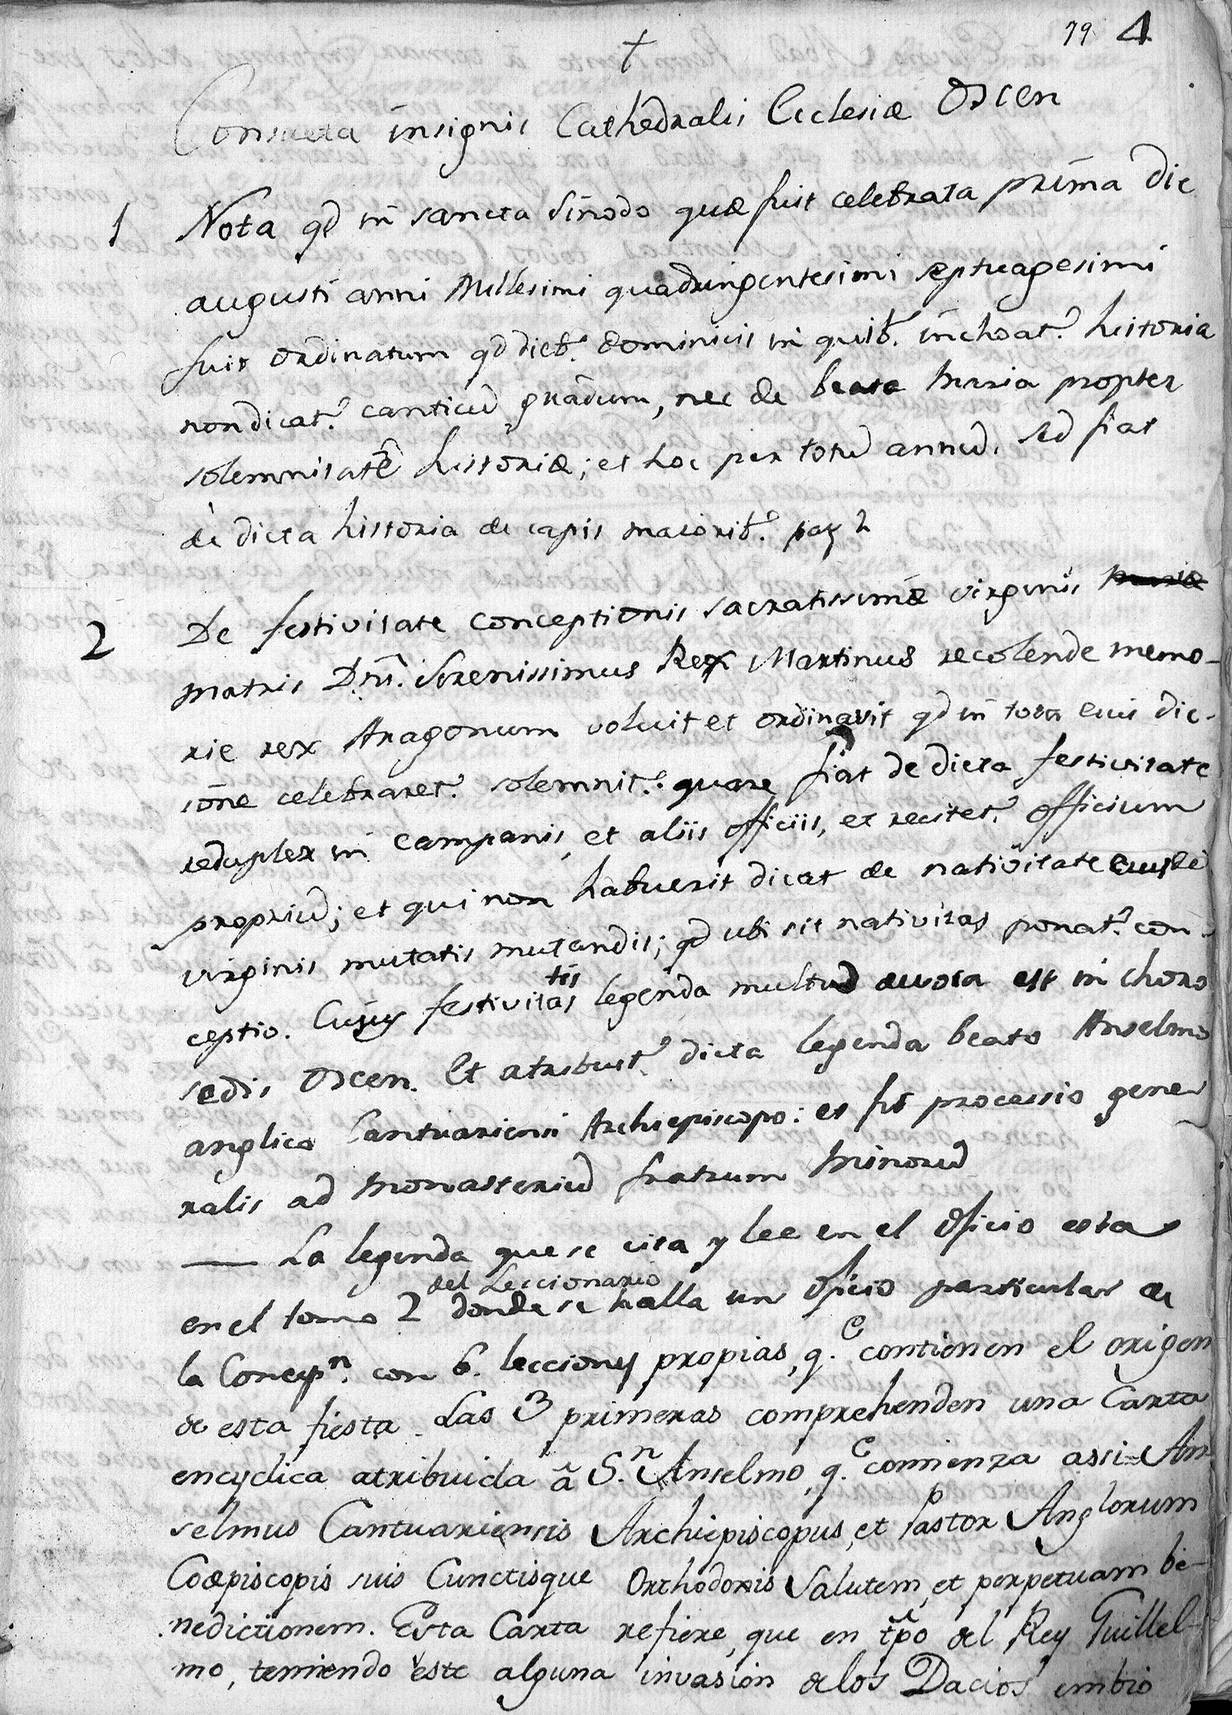 79 4
+
Consueta insignis Cathedralis Ecclesiæ Oscen
1 Nota qd in sancta Sinodo quæ fuit celebrata prima die
augusti anni Millesimi quadringentesimi septuagesimi
fuit ordinatum qd dictb. dominicis in quib. inchoat. historia
non dicat. canticũ graduum, nec de beata Maria propter
solemnitatẽ historiæ; et hoc per totũ annũ. sed fiat
de dicta historia de capis maiorib. pag 2
2 De festivitate conceptionis sacratissimæ virginis Mariæ
matris Dñi. Serenissimus Rex Martinus recolende memo-
rie rex Aragonum voluit et ordinavit qd in tota eius dic-
iõne celebraret. solemnit. quare fiat de dicta festivitate
reduplex in campanis, et aliis officiis, et recitet. officium
propriũ; et qui non habuerit dicat de nativitate eiusdẽ
virginis mutatis mutandis; qd ubi sit nativitas ponat. con-
ceptio. Cujus festivitatis legenda multũ devota est in choro
sedis Oscen. Et atribuit. dicta legenda beato Anselmo
anglico Cantuariensi Archiepiscopo: et fit processio gene-
ralis ad Monasteriũ fratrum Minorũ
— La legenda que se cita y lee en el Oficio esta
en el tomo 2 del Leccionario donde se halla un Oficio particular de
la Concepn. con 6. lecciones propias, q.e contienen el origen
de esta fiesta. Las 3 primeras comprehenden una Carta
encyclica atribuida â S.n Anselmo, q.e comienza assi = An-
selmus Cantuariensis Archiepiscopus, et Pastor Anglorum
Coæpiscopis suis Cunctisque Orthodoxis Salutem, et perpetuam be-
nedictionem. Esta Carta refiere, que en tpõ del Rey Guillel-
mo, temiendo este alguna invasion de los Dacios embio